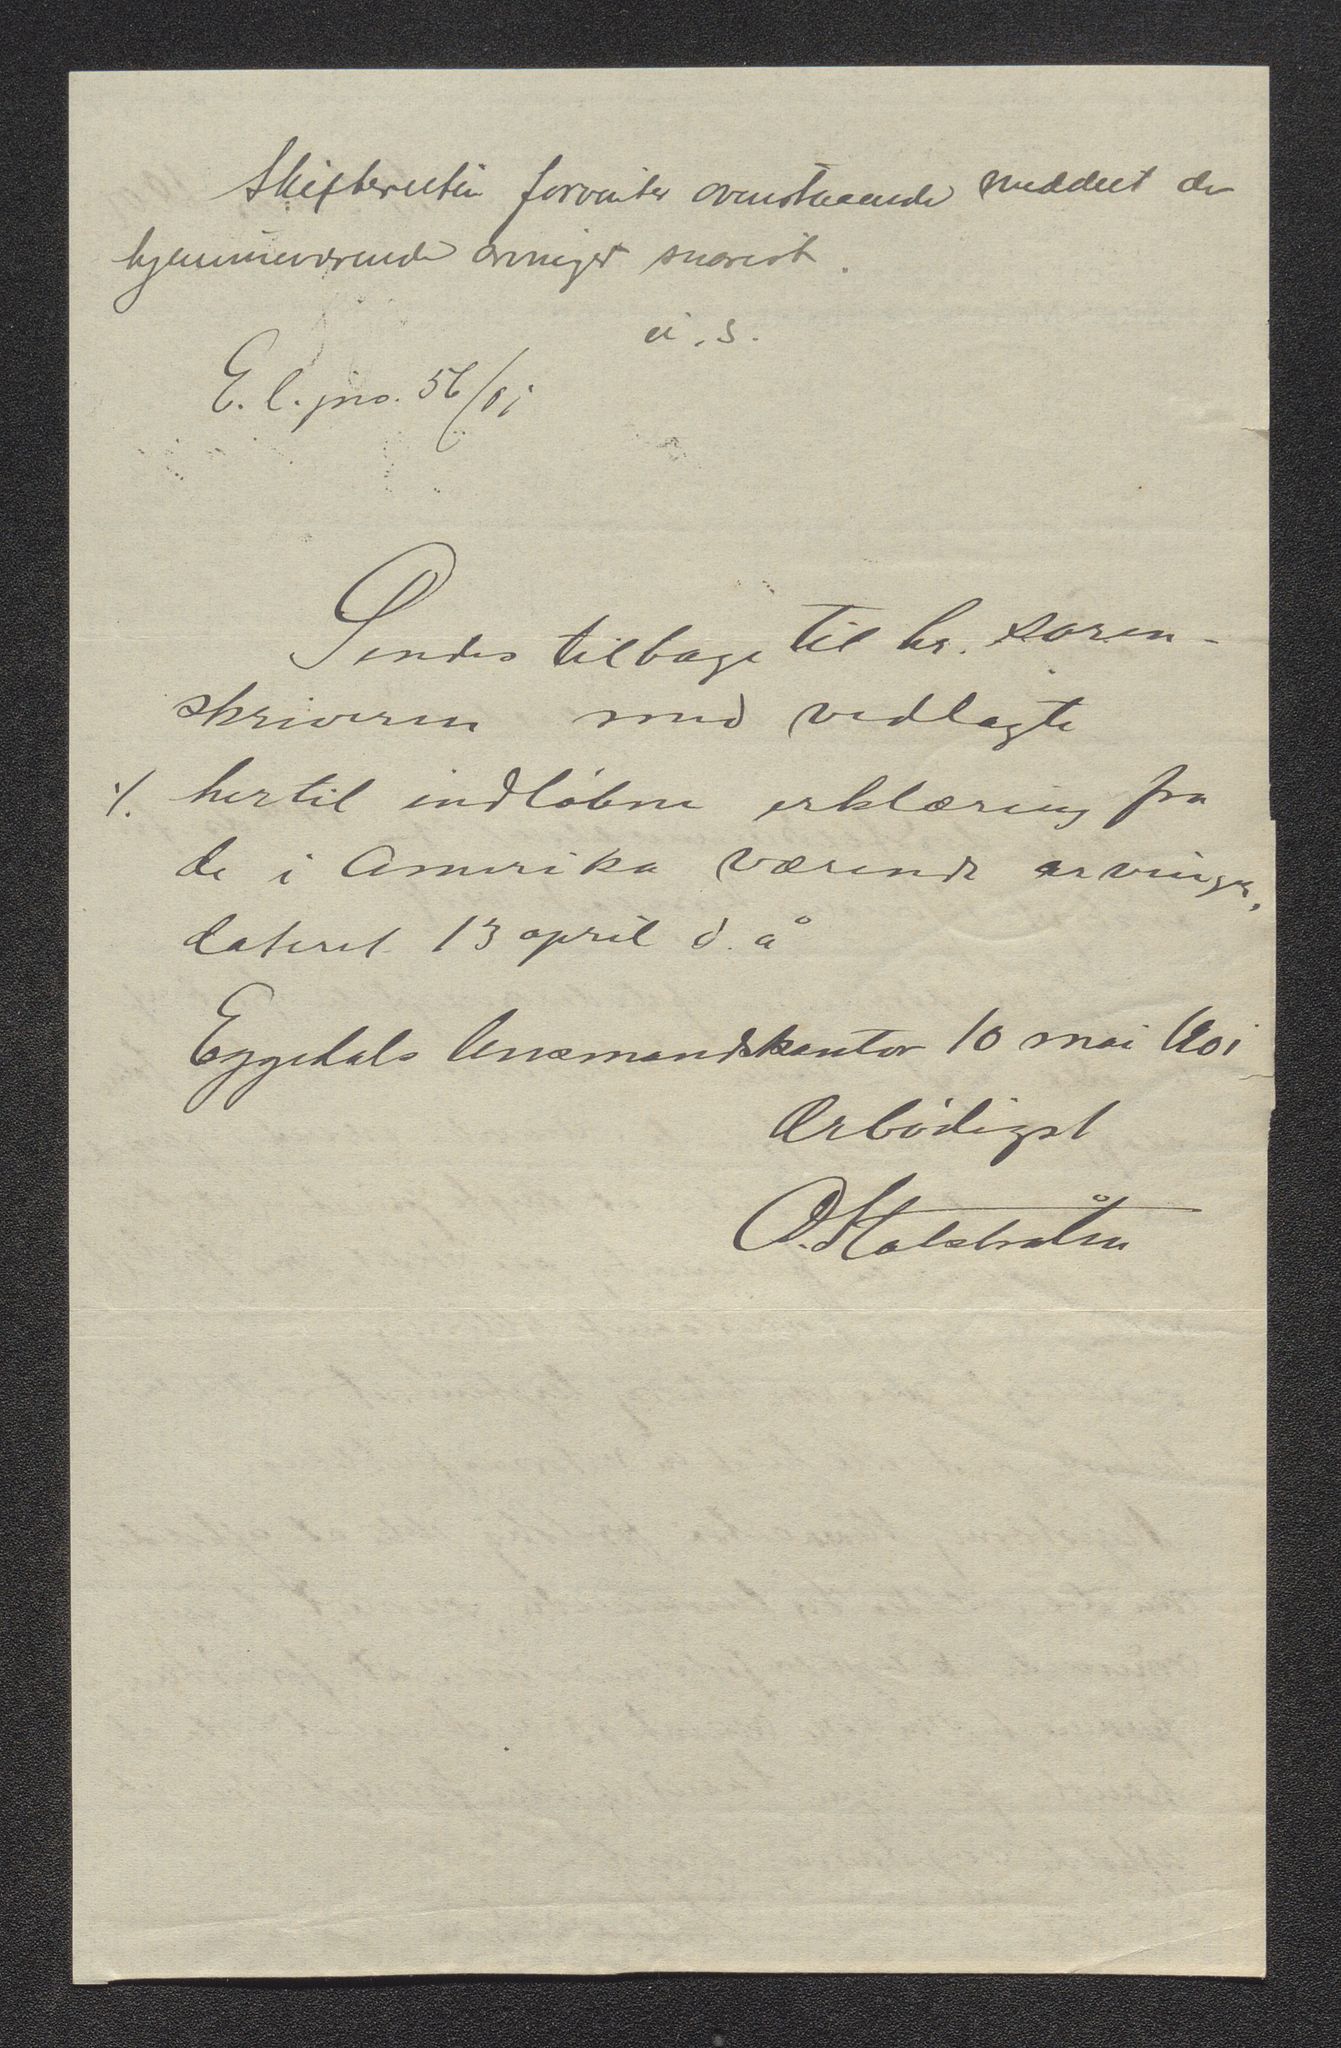 Skifteretten forventer ovenstaaende meddelt de
hjemmeværende arvinger snarest.
u. s.
E. l. jno. 56/01
Sendes tilbage til hr. soren-
skriveren med vedlagte
./. hertil indløbne erklæring fra
de i Amerika værende arvinger,
dateret 13 april d. å
Eggedals lensmandskontor 10 mai 1901
Ærbødigst
O. Halstråten